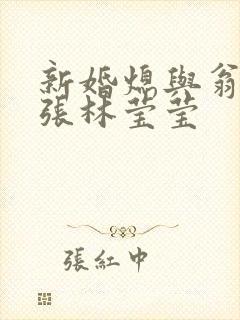 新婚熄與翁
張林莹莹
張紅中